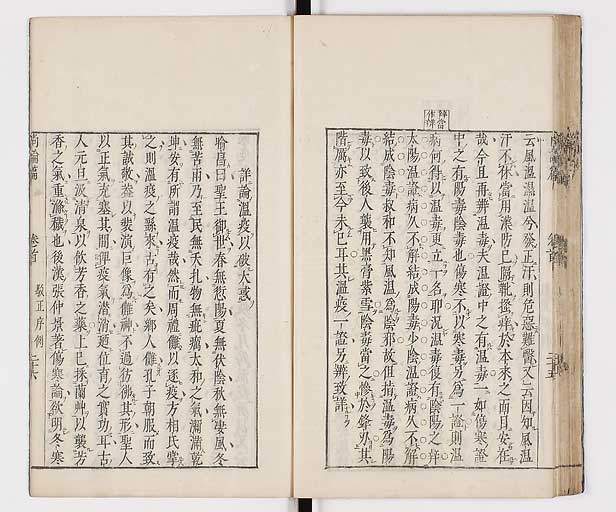 云風溫濕溫今發正汗則危惡難醫又云因知風溫
汗不休當用漢防已厥
於本來之面目安在
哉今且再辨溫毒夫溫證中之有溫毒一如傷寒證
中之有陽毒陰毒也傷寒不以寒毒另為一證則溫
病何得以溫毒更立一名耶況溫毒復有陰陽之
辨當
作辨
太陽溫證病久不解結成陽毒少陰溫證病久不解
結成陰毒叔和不知風溫為陰邪故但指溫毒為陽
毒以致後人襲用黑膏紫雪陰毒當之慘於鋒刃其
階厲亦至今未已耳其溫疫一證另辨致詳
詳論溫疫以破大惑
喻昌曰聖王御世春無愆陽夏無伏陰秋無淒風冬
無苦雨乃至民無夭札物無疵癘太和之氣彌滿乾
坤安有所謂溫疫哉然而周禮儺以逐疫方相氏掌
之則溫疫之繇來古有之矣鄉人儺孔子朝服而致
其誠敬蓋以裝演巨像為儺神不過彷彿其形聖人
以正氣充塞其間俾疫氣潛消廼位育之實功耳古
人元旦汲清泉以飲芳香之藥上巳採蘭艸以襲芳
香之氣重滌穢也後漢張仲景著傷寒論欲明冬寒
尚論篇 卷首 駁正序例 二十六